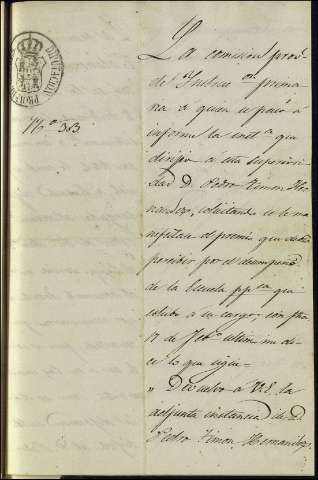 DIPUTACION PROV. DE
Nº 33
La comision prov.
de Instruc.on prima-
ria a quien se pasó á
informe la inst.a que
dirigió á esta superiori-
dad D. Pedro Simon Her-
nandez, solicitando se le ma-
nifieste el premio que debe
percibir por el desempeño
de la Escuela pp.ca que
estubo a su cargo, con fha
17 de Feb.o ultimo me di-
ce lo que sigue-
"Devuelvo a V.E. la
adjunta instancia de D.
Pedro Simon Hernandez,